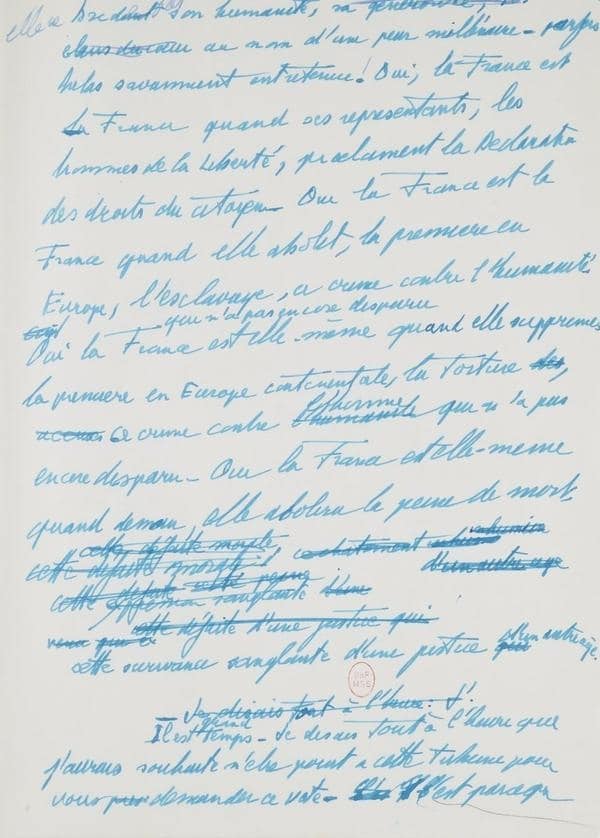 son humanité, sa générosité,
au nom d'une peur millénaire - parfois
hélas savamment entretenue! Oui, la France est
la France quand ses représentants, les
hommes de la Liberté, proclament la Déclaration
des droits du citoyen - Oui la France est la
France quand elle abolit, la première en
Europe, l'esclavage, ce crime contre l'humanité
qui n'a pas encore disparu
Oui la France est elle-même quand elle supprime
la première en Europe continentale, la torture des,
ce crime contre l'humanité l'homme qui n'a pas
encore disparu - Oui la France est elle-même
quand demain, elle abolira la peine de mort,
cette défaite morale,
cette défaite morale, ce châtiment
d'un autre age
cette
expression sanglante d'une
cette défaite d'une justice qui
veut que ce
cette survivance sanglante d'une justice qui d'un autre âge.
- Je disais tout à l'heure : j'
Il est grand temps - Je disais tout à l'heure que
j'aurais souhaité n'être point à cette tribune pour
vous pour demander ce vote - C'est parce que